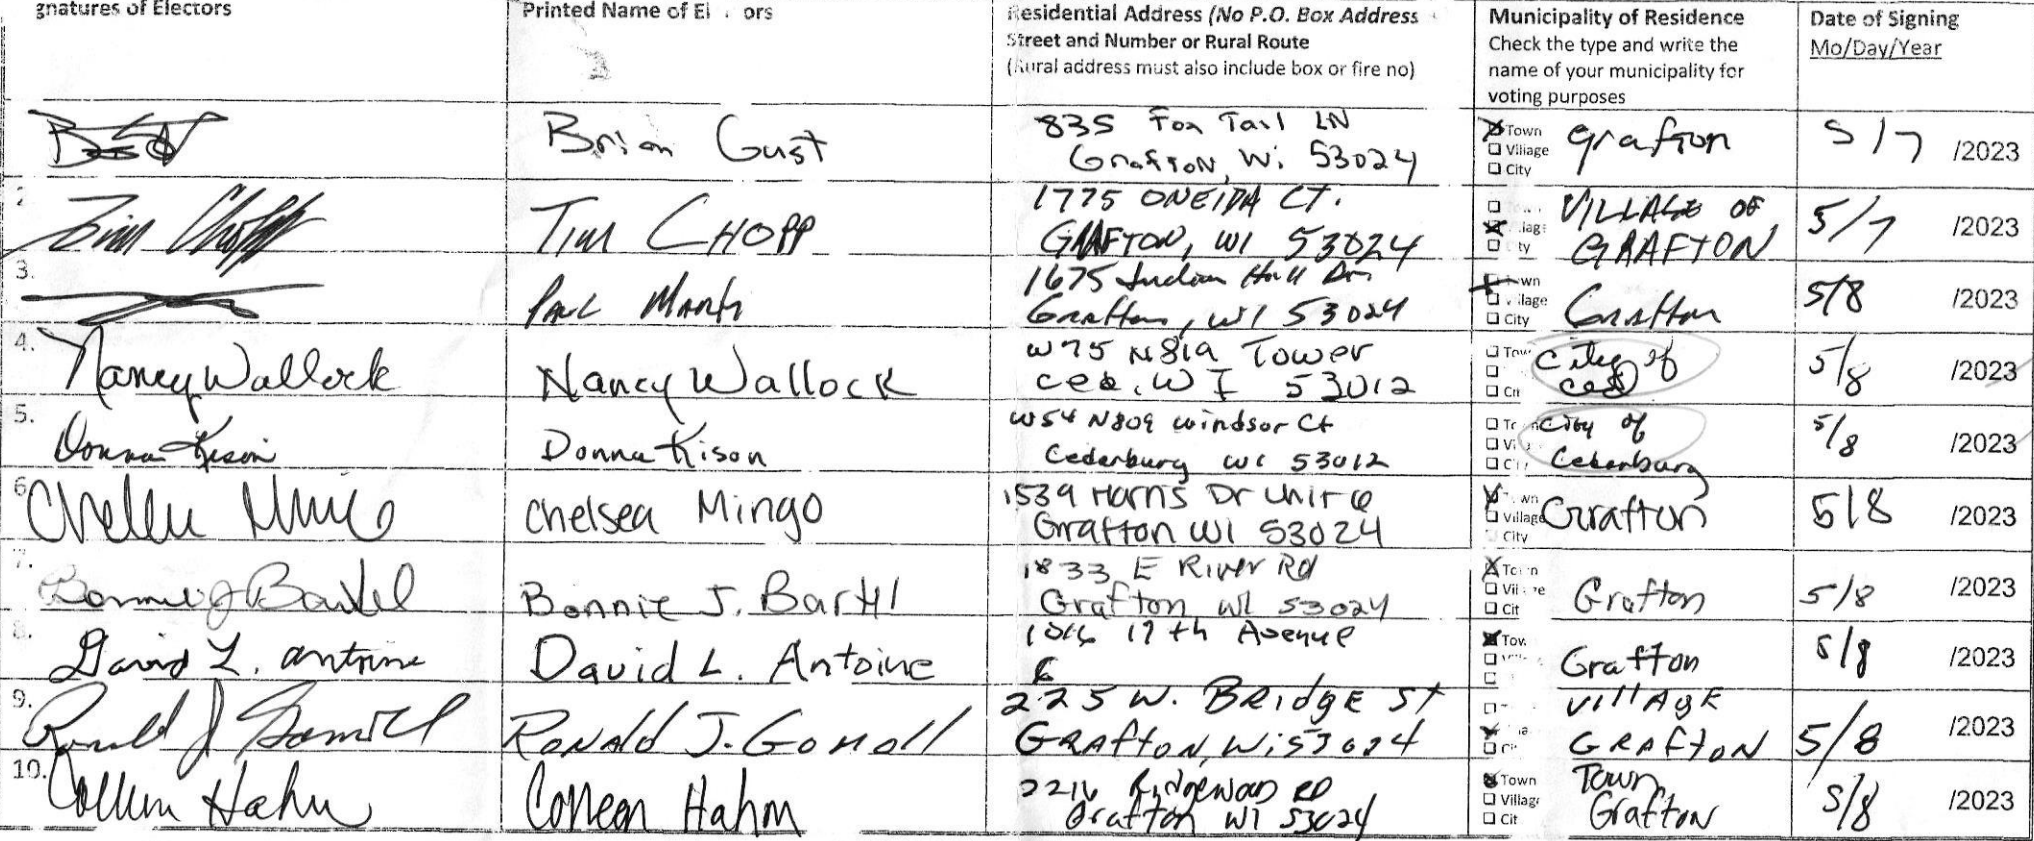 gnatures of Electors
Printed Name of El ors
Residential Address (No P.O. Box Address
Street and Number or Rural Route
(Rural address must also include box or fire no)
Municipality of Residence
Check the type and write the
name of your municipality for
voting purposes
Date of Signing
Mo/Day/Year
Brian Gust
835 Fox Tail LN
Grafton, Wi. 53024
Town
Village
City
grafton
5/7 /2023
2.
Tim Chopp
TIM CHOPP
1775 ONEIDA CT.
GRAFTON, WI 53024
VILLAGE OF
GRAFTON
5/7 /2023
3.
PAUL
1675 Indian Hill Dr.
Grafton, WI 53024
City
Grafton
5/8 /2023
4.
Nancy Wallock
Nancy Wallock
W75 N819 Tower
Ced. WI 53012
City of
Ced
5/8 /2023
5.
Donna Kison
Donna Kison
W54 N809 Windsor Ct
Cedarburg WI 53012
City of
Cedarburg
5/8 /2023
6.
Chelsea Mingo
1539 Harris Dr Unit
Grafton WI 53024
Village
City
Grafton
5/8 /2023
7.
Bonnie J.
1833 E River Rd
Grafton WI 53024
Grafton
5/8 /2023
8.
David L. Antoine
David L. Antoine
17th Avenue
Grafton
5/8 /2023
9.
Ronald J.
RONALD J. GOMOLL
225 W. BRIDGE ST
GRAFTON, Wi 53024
VILLAGE
GRAFTON
5/8 /2023
10.
Colleen Hahm
Colleen Hahm
2216 Ridgewood RD
Grafton WI 53024
Town
Village
Town
Grafton
5/8 /2023